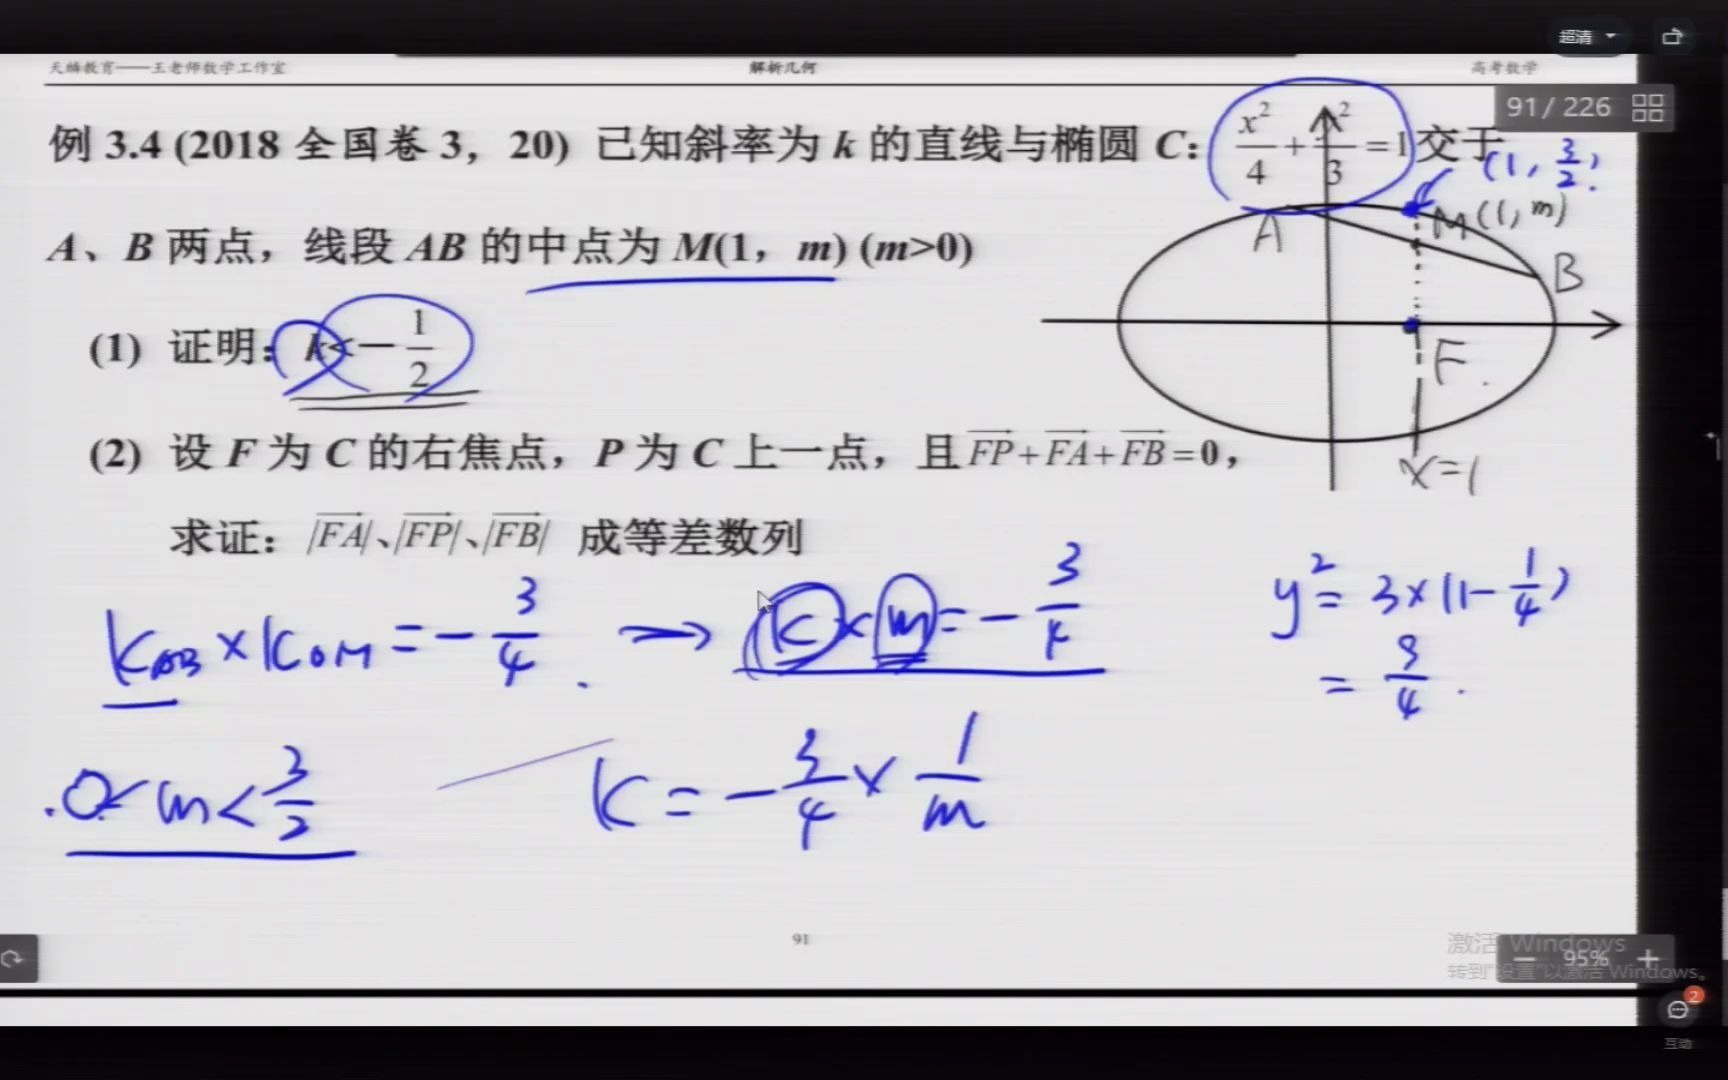 超清
天麟教育——王老师数学工作室 解析几何 高考数学
91 / 226
例 3.4 (2018 全国卷 3，20) 已知斜率为 k 的直线与椭圆 C: x²/4 + y²/3 = 1 交于
(1, 3/2)
A、B 两点，线段 AB 的中点为 M(1，m) (m>0)
A M(1, m)
B
(1) 证明: k<-1/2
F
(2) 设 F 为 C 的右焦点，P 为 C 上一点，且 FP+FA+FB=0，
x=1
求证: |FA|、|FP|、|FB| 成等差数列
K_AB × K_OM = -3/4 . → K × m = -3/4
y² = 3×(1-1/4)
= 9/4 .
0<m<3/2
K = -3/4 × 1/m
91
激活 Windows
转到"设置"以激活 Windows。
95%
2
互动